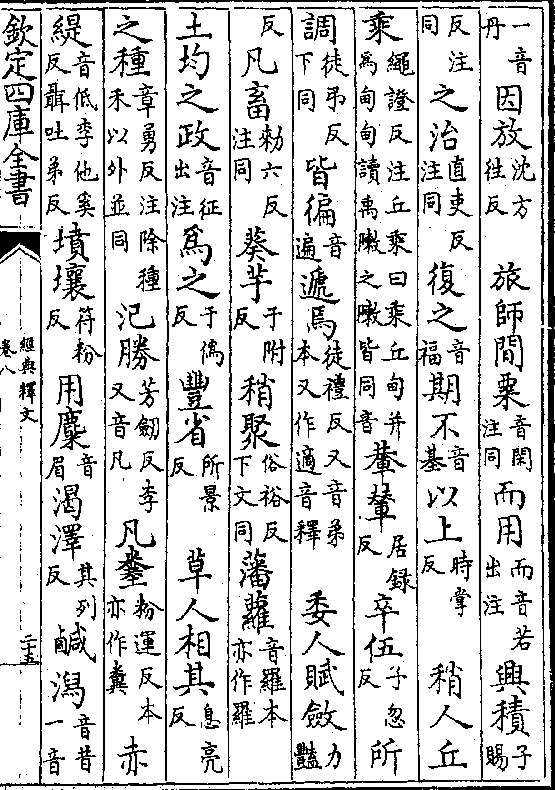 一音丹因放沈方往反旅師閒粟音閑注同而用而音若出注興積子賜
反注同之治直吏反注同復之音福期不音基以上時掌反稍人丘
乘繩證反注丘乘曰乘丘甸并為甸甸讀禹敶之敶皆同音輂輦居録反卒伍子忽反所
調徒弔反下同皆徧音遍遞焉徒禮反又音弟本又作適音釋委人賦斂力豔
反凡畜勑六反注同葵芋于附反稍聚俗裕反下文同藩蘿音羅本亦作羅
土均之政音征出注爲之于偽反豐省所景反草人相其息亮反
之種章勇反注除種禾以外並同汜勝芳劒反李又音凡凡䊳粉運反本亦作糞赤
緹音低李他奚反聶吐弟反墳壤符粉反用麋音眉渴澤其列反鹹潟音昔一音
欽定四庫全書
經典釋文
卷八
二十五